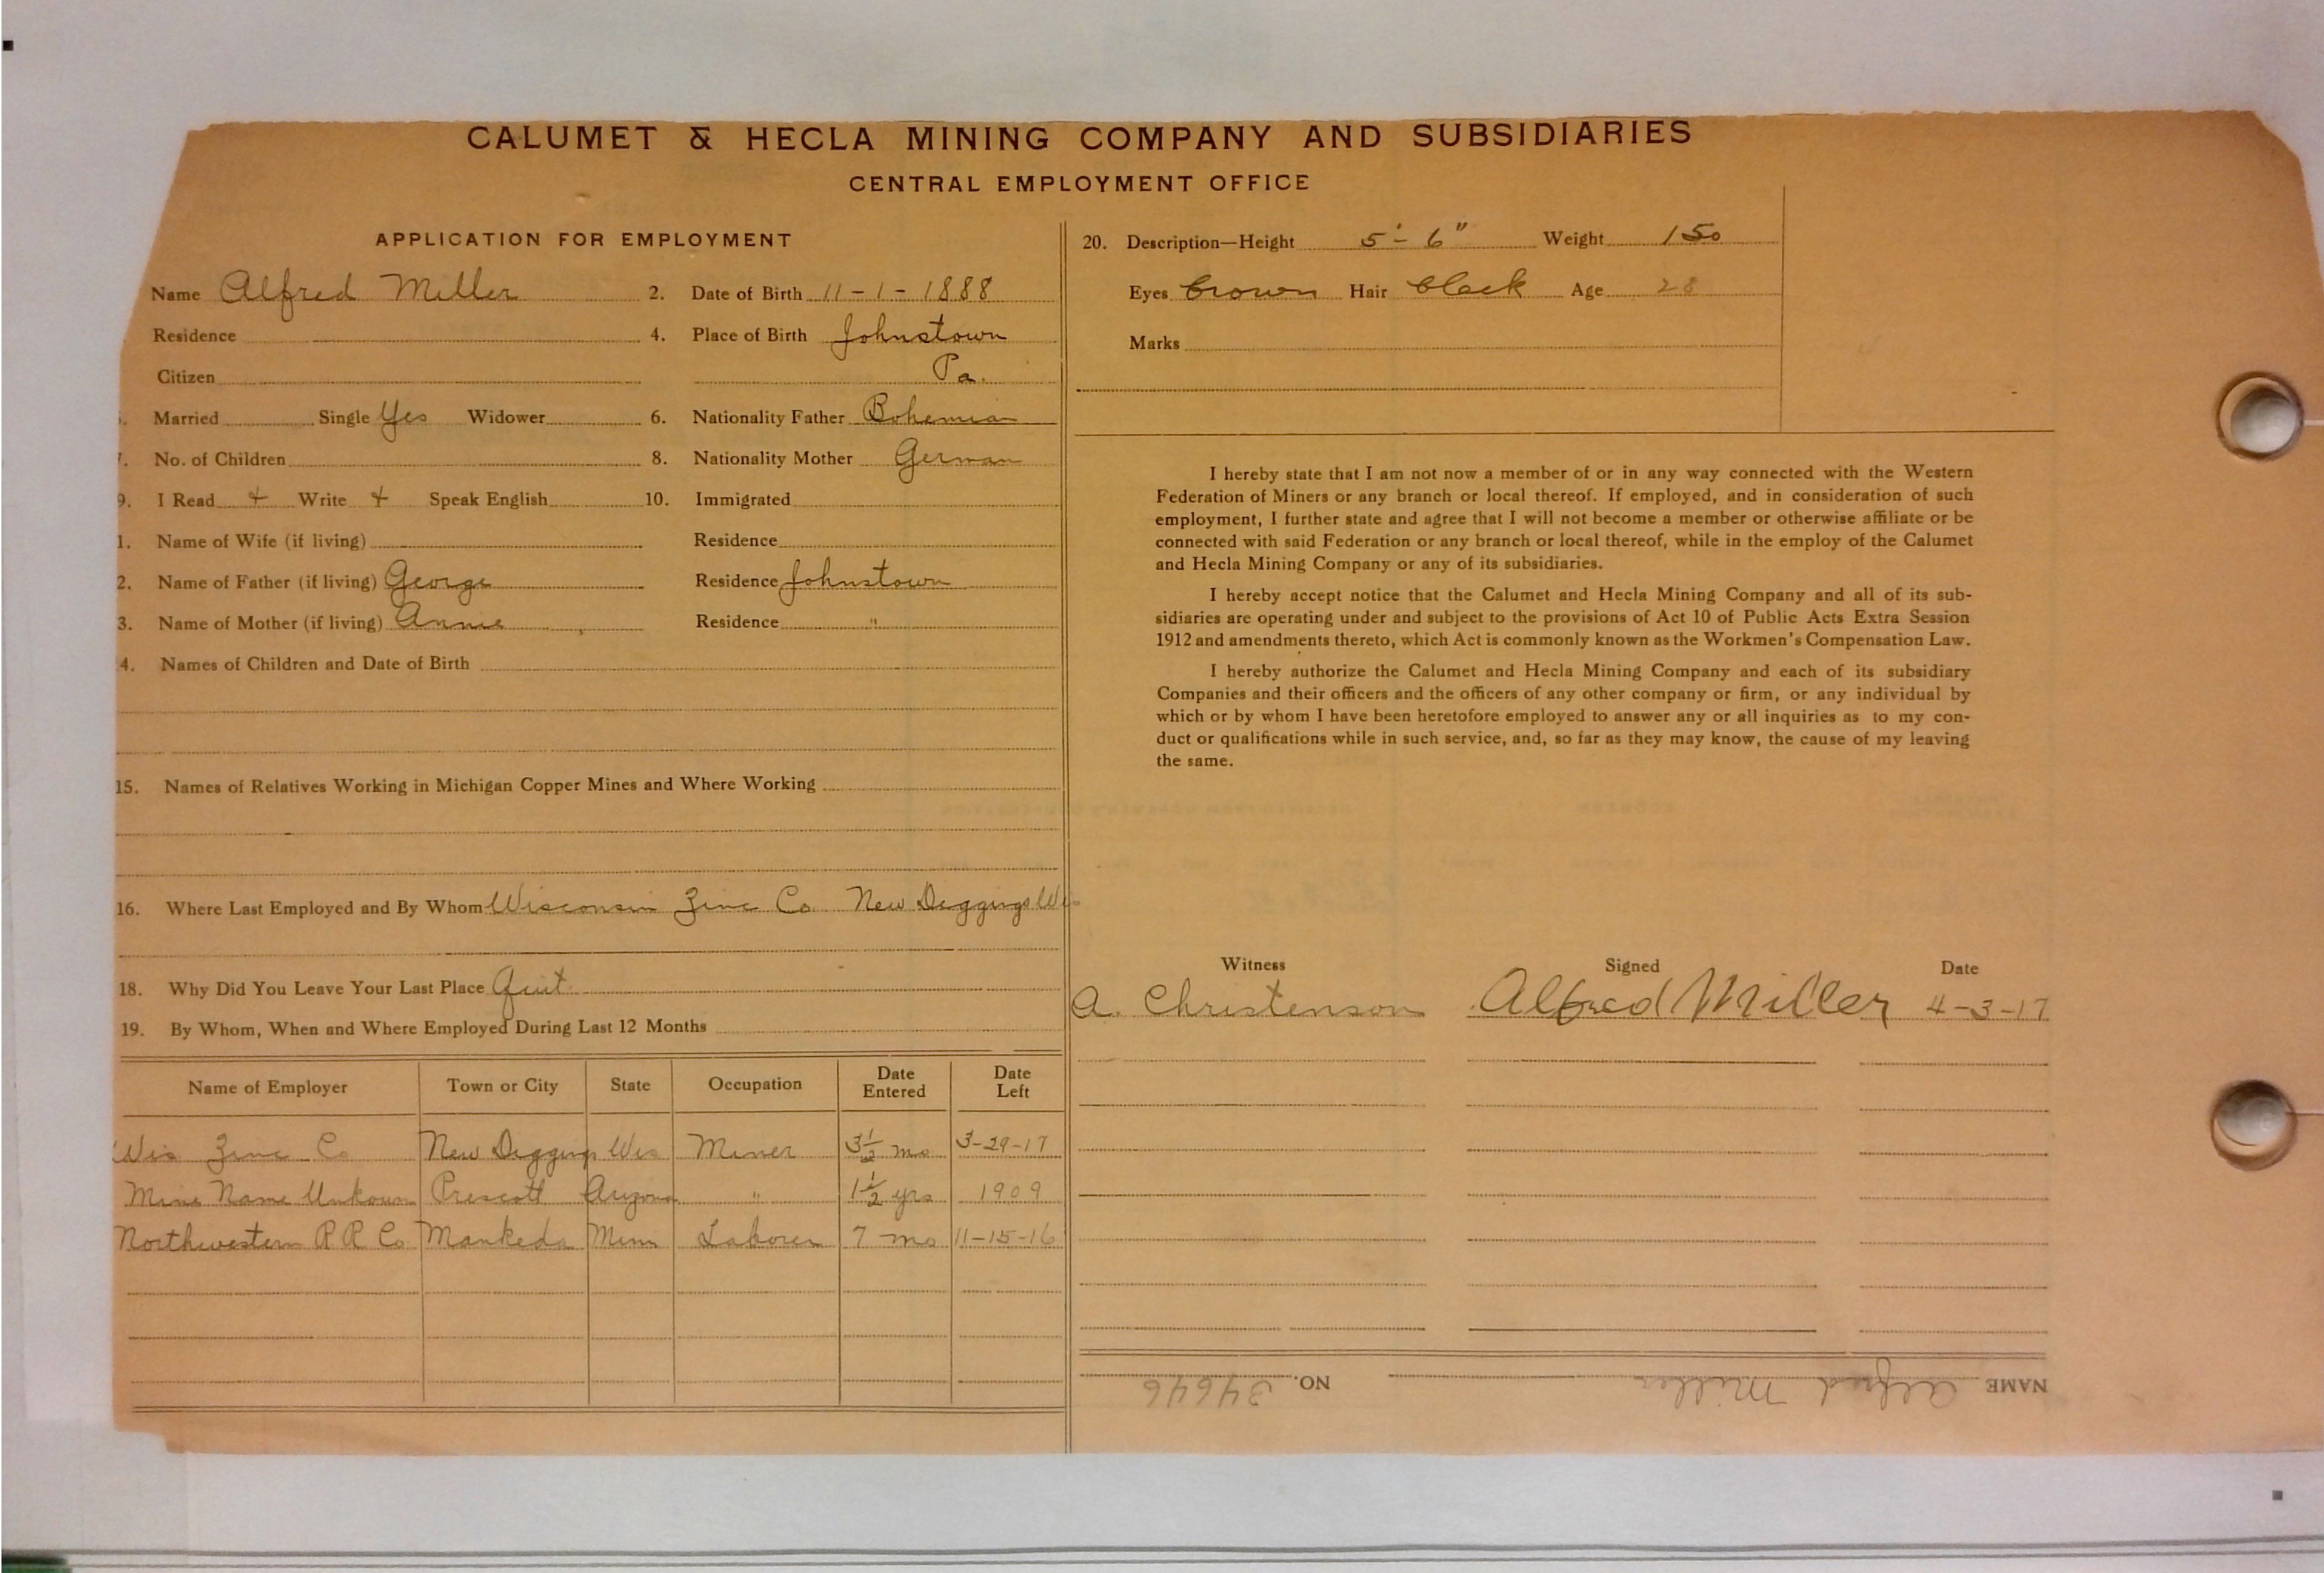 CALUMET & HECLA MINING COMPANY AND SUBSIDIARIES
CENTRAL EMPLOYMENT OFFICE
APPLICATION FOR EMPLOYMENT
Name Alfred Miller 2. Date of Birth 11-1-1888
Residence 4. Place of Birth Johnstown
Citizen Pa.
Married Single Yes Widower 6. Nationality Father Bohemian
7. No. of Children 8. Nationality Mother German
9. I Read + Write + Speak English 10. Immigrated
1. Name of Wife (if living) Residence
2. Name of Father (if living) George Residence Johnstown
3. Name of Mother (if living) Annie Residence "
4. Names of Children and Date of Birth
15. Names of Relatives Working in Michigan Copper Mines and Where Working
16. Where Last Employed and By Whom Wisconsin Zinc Co New Diggings Wis
18. Why Did You Leave Your Last Place Quit
19. By Whom, When and Where Employed During Last 12 Months
Name of Employer Town or City State Occupation Date Entered Date Left
Wis Zinc Co New Diggings Wis Miner 3½ mo 3-29-17
Mine Name Unkown Prescott Arizona " 1½ yrs 1909
Northwestern R R Co Mankeda Minn Laborer 7 mo 11-15-16
20. Description—Height 5'-6" Weight 150
Eyes brown Hair black Age 28
Marks
I hereby state that I am not now a member of or in any way connected with the Western
Federation of Miners or any branch or local thereof. If employed, and in consideration of such
employment, I further state and agree that I will not become a member or otherwise affiliate or be
connected with said Federation or any branch or local thereof, while in the employ of the Calumet
and Hecla Mining Company or any of its subsidiaries.
I hereby accept notice that the Calumet and Hecla Mining Company and all of its sub-
sidiaries are operating under and subject to the provisions of Act 10 of Public Acts Extra Session
1912 and amendments thereto, which Act is commonly known as the Workmen's Compensation Law.
I hereby authorize the Calumet and Hecla Mining Company and each of its subsidiary
Companies and their officers and the officers of any other company or firm, or any individual by
which or by whom I have been heretofore employed to answer any or all inquiries as to my con-
duct or qualifications while in such service, and, so far as they may know, the cause of my leaving
the same.
Witness Signed Date
A. Christenson Alfred Miller 4-3-17
NAME Alfred Miller NO. 34646